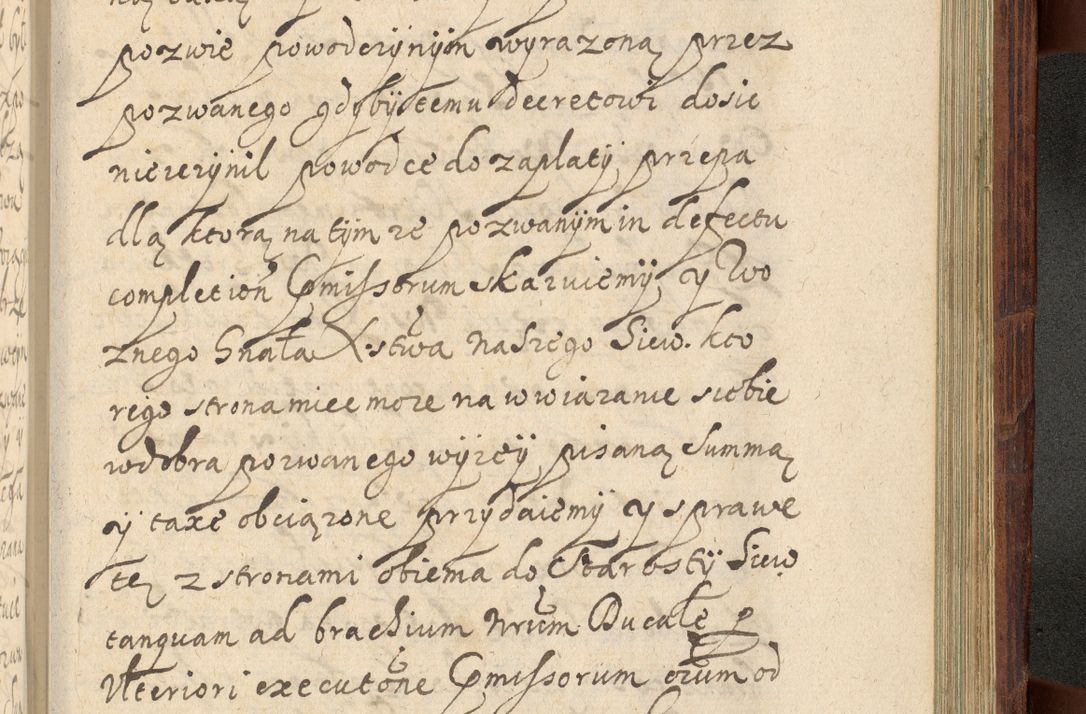 pozwie powodczÿnÿm wyrazoną przez
pozwanego gdÿbÿ temu decretowi dosic
nieczÿnil powodce do zaplatÿ przepa
dlą ktorą na tÿm ze pozwanÿm in defectu
completion Comissorum skazuiemÿ y Wo
znego Gnała X. stwa naszego Siew. kto
rego strona miec moze na wwiązanie siebie
w dobra pozwanego wÿzeÿ pisaną Summą
y taxe obciązone przÿdaiemÿ y sprawe
tę z stronami obiema do Starostÿ Siew
tanquam ad brachium Nrum Ducale p
Ulteriori executone Comissorum orum od